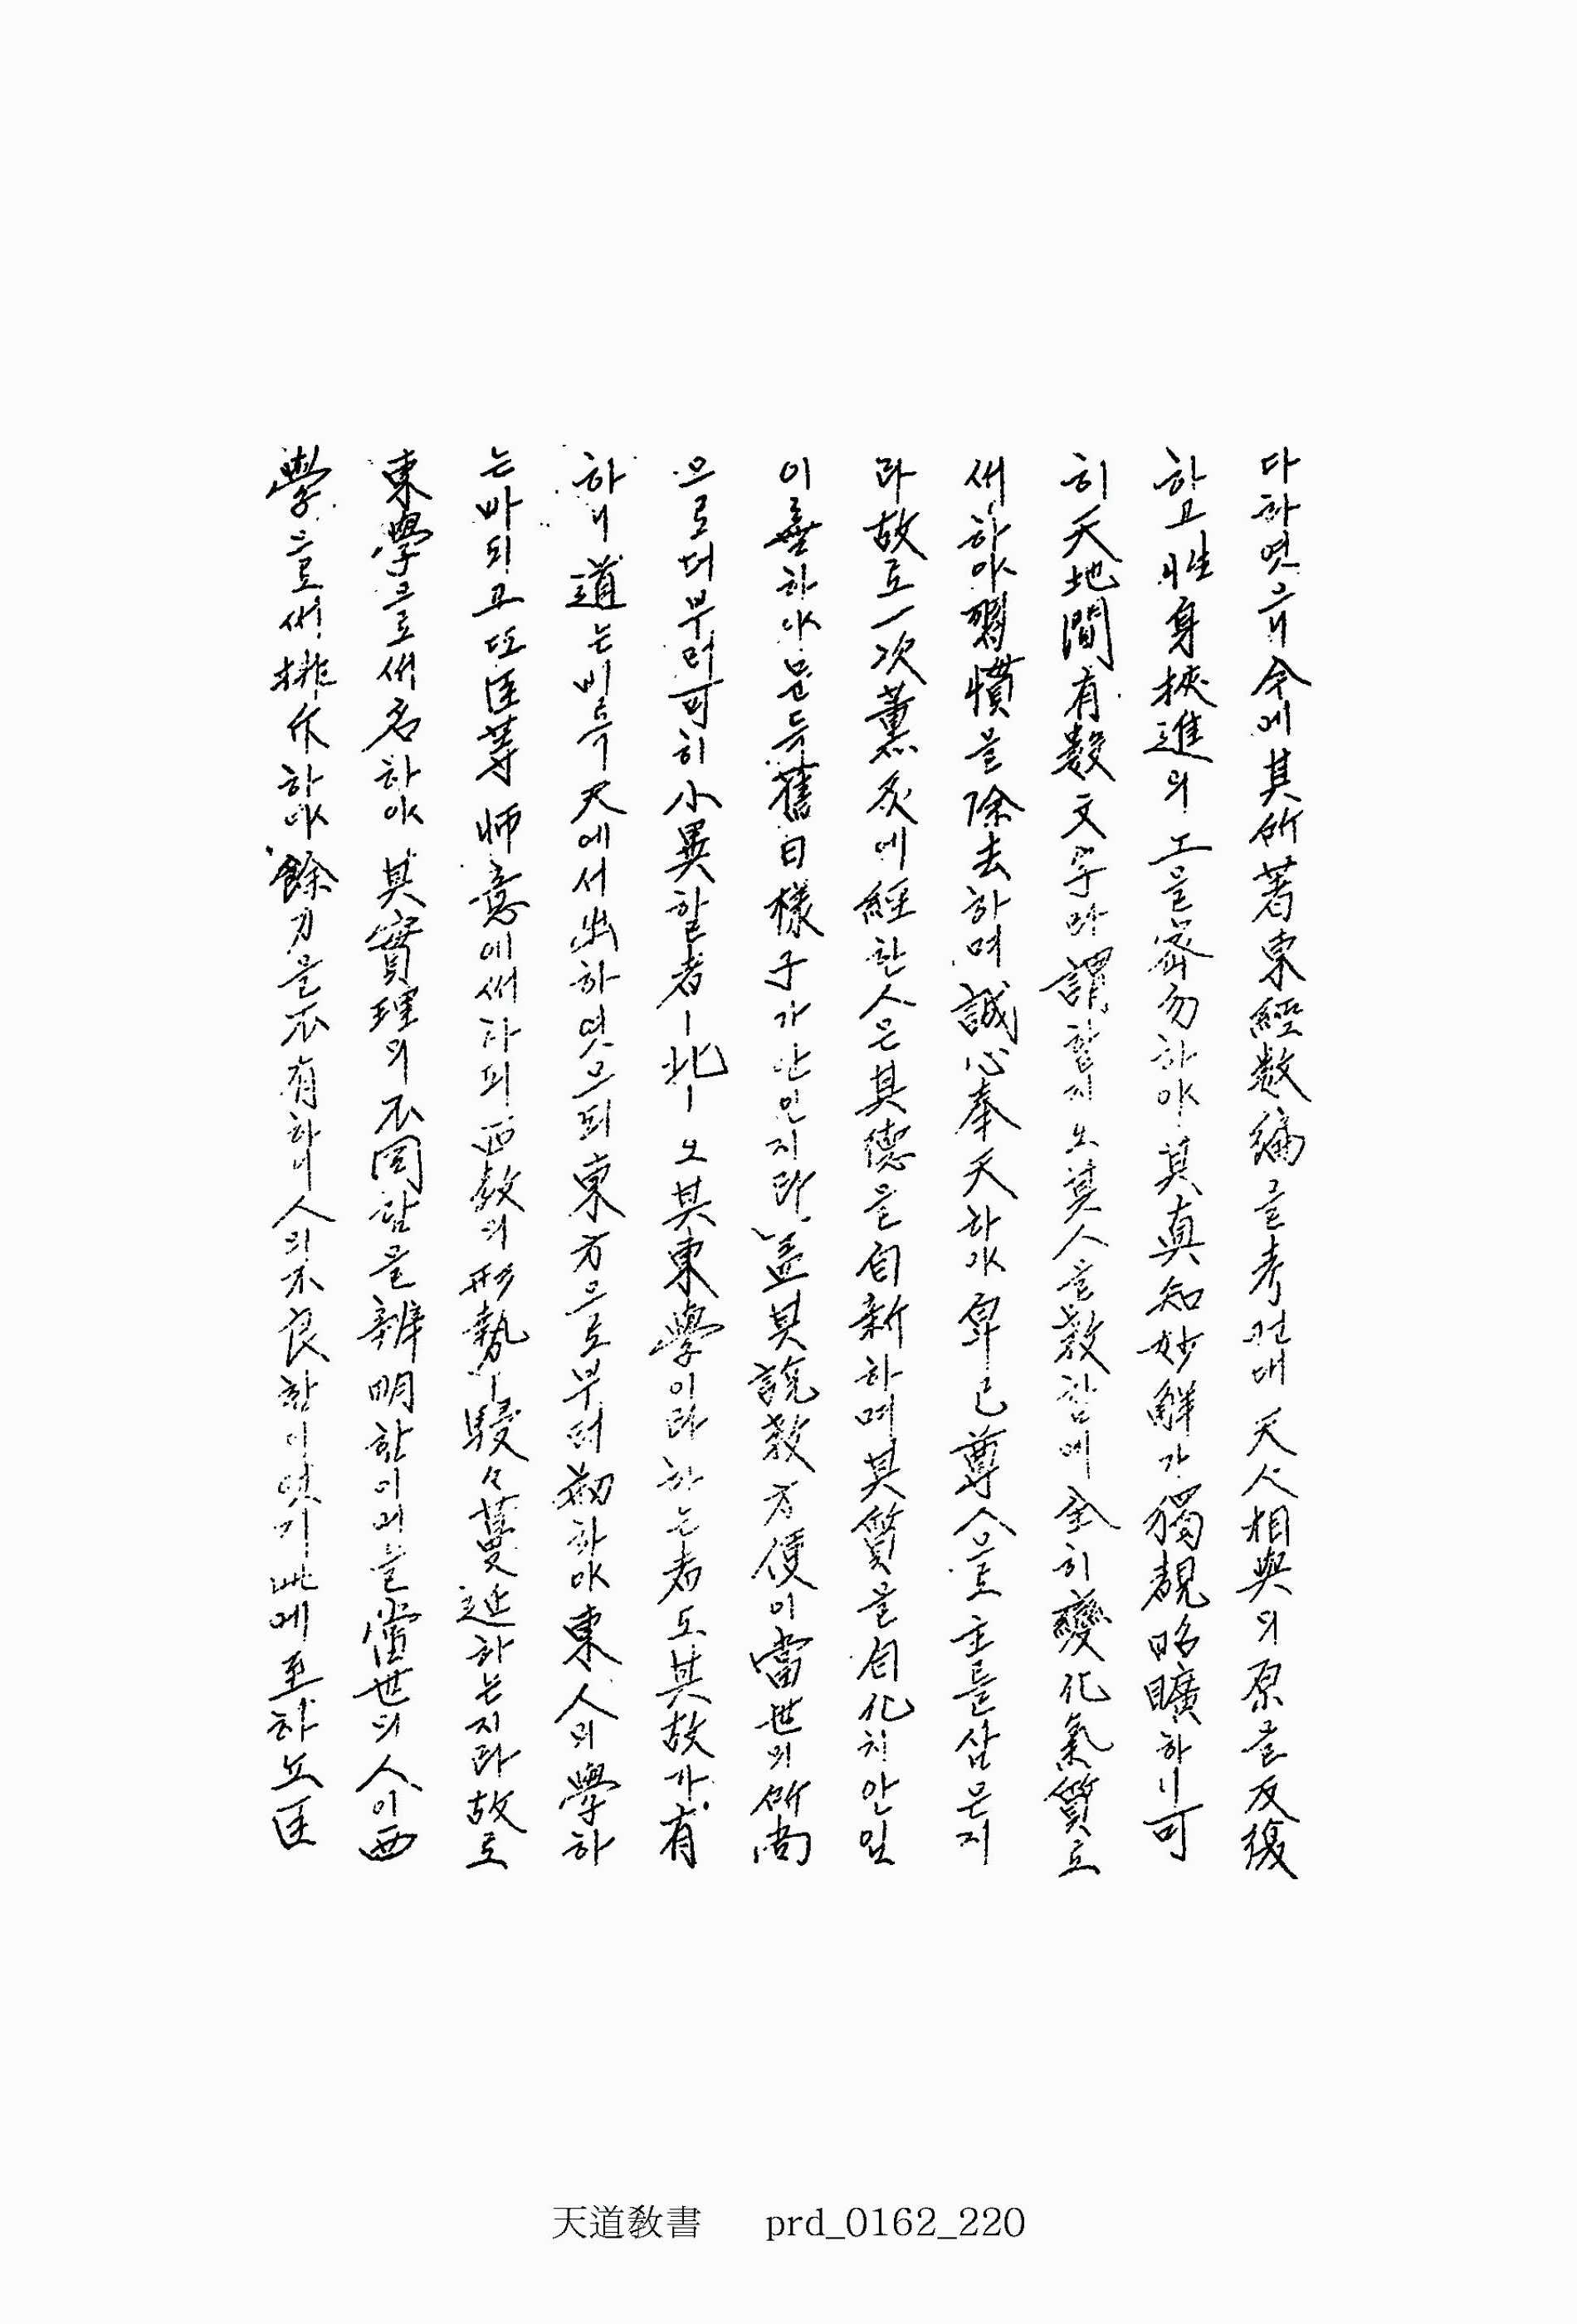 다하엿으니 今에 其所著東經數編을 考컨대 天人相與의 原을 反復
하고 性身挾進의 工을 密勿하야 其眞知妙解가 獨覩昭曠하니 可
히 天地間有數文字라 謂할지노 其人을 敎함에 全히 變化氣質로
써 하야 習慣을 除去하며 誠心奉天하야 卑己尊人으로 主를 삼은지
라 故로 一次薰炙에 經한 人은 其德을 自新하며 其質을 自化치 안일
이 無하야 문득 舊日樣子가 안인지라 盖其說敎方便이 當世의 所尙
으로 더부러 可히 小異할 者ㅣ 北ㅣ노 其東學이라 하는 者도 其故가 有
하니 道는 비륵 天에서 出하엿으되 東方으로부터 刱하야 東人의 學하
는 바 되고 또 臣等師意에 써 하되 西敎의 形勢ㅣ 駸々蔓延하는지라 故로
東學으로 써 名하야 其實理의 不同함을 辨明함이며늘 當世의 人이 西
學으로 써 排斥하야 餘力을 不有하니 人의 不良함이 엇지 此에 至하노 臣
天道敎書 prd_0162_220